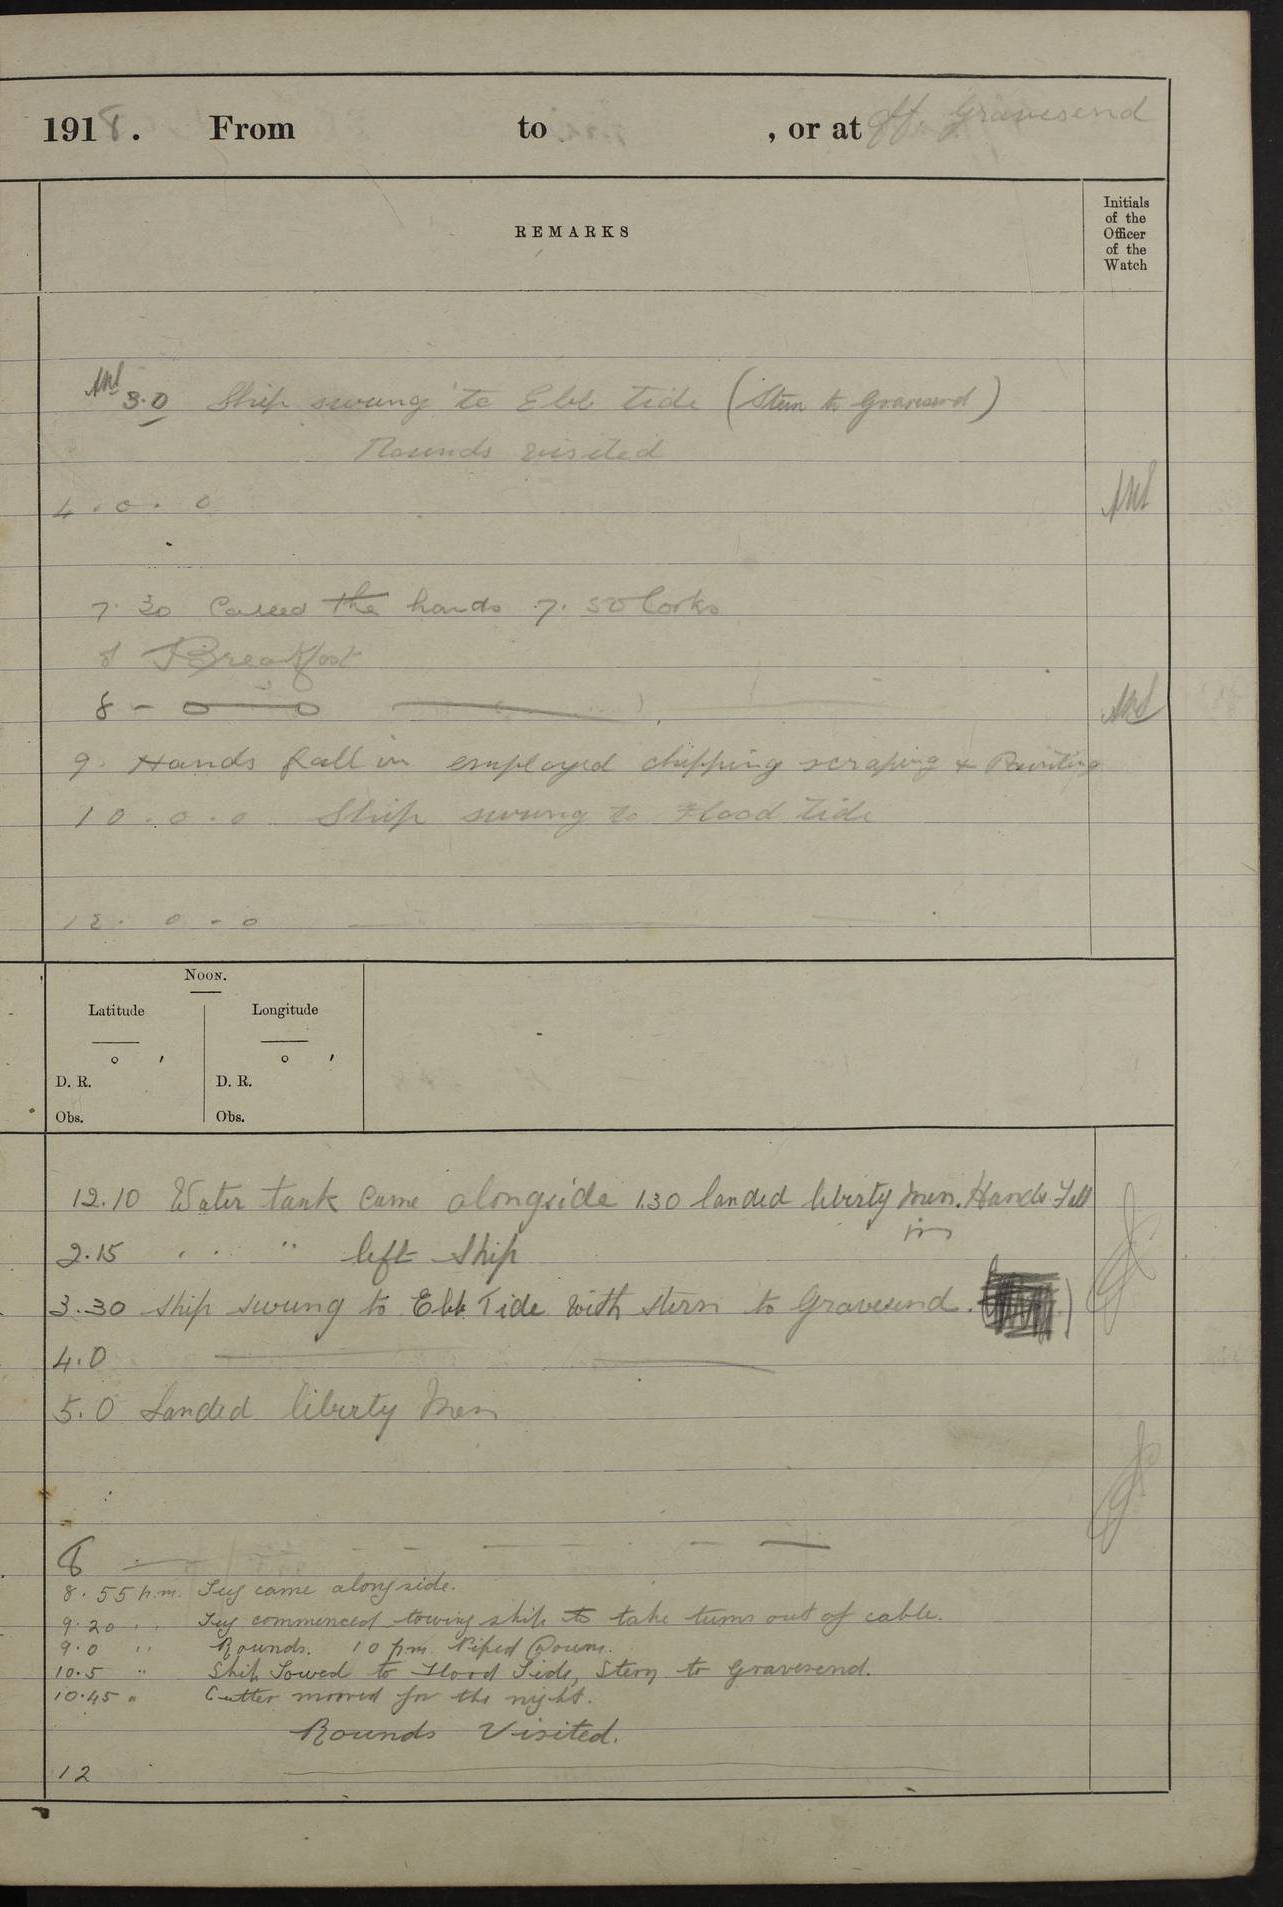 1918. From to , or at off Gravesend
REMARKS
Initials
of the
Officer
of the
Watch
3.0 Ship swung to Ebb tide (Stern to Gravesend)
Rounds visited
4.0.0
7.30 Called the hands 7.50 Cooks
8 Breakfast
8 - o o
9. Hands fall in employed chipping scraping & Painting
10.0.0 Ship swung to Flood tide
12. 0 - 0
NOON.
Latitude Longitude
° ′ ° ′
D. R. D. R.
Obs. Obs.
12.10 Water tank came alongside 1.30 landed liberty men. Hands Fell
in
2.15 " " " left Ship
3.30 Ship swung to Ebb Tide with stern to Gravesend.
4.0
5.0 Landed liberty Men
8
8.55 p.m. Tug came alongside.
9.20 " " Tug commenced towing ship to take turns out of cable.
9.0 " Rounds. 10 pm Piped Down.
10.5 " Ship Towed to Flood Tide, Stern to Gravesend.
10.45 " Cutter moored for the night.
Rounds Visited.
12